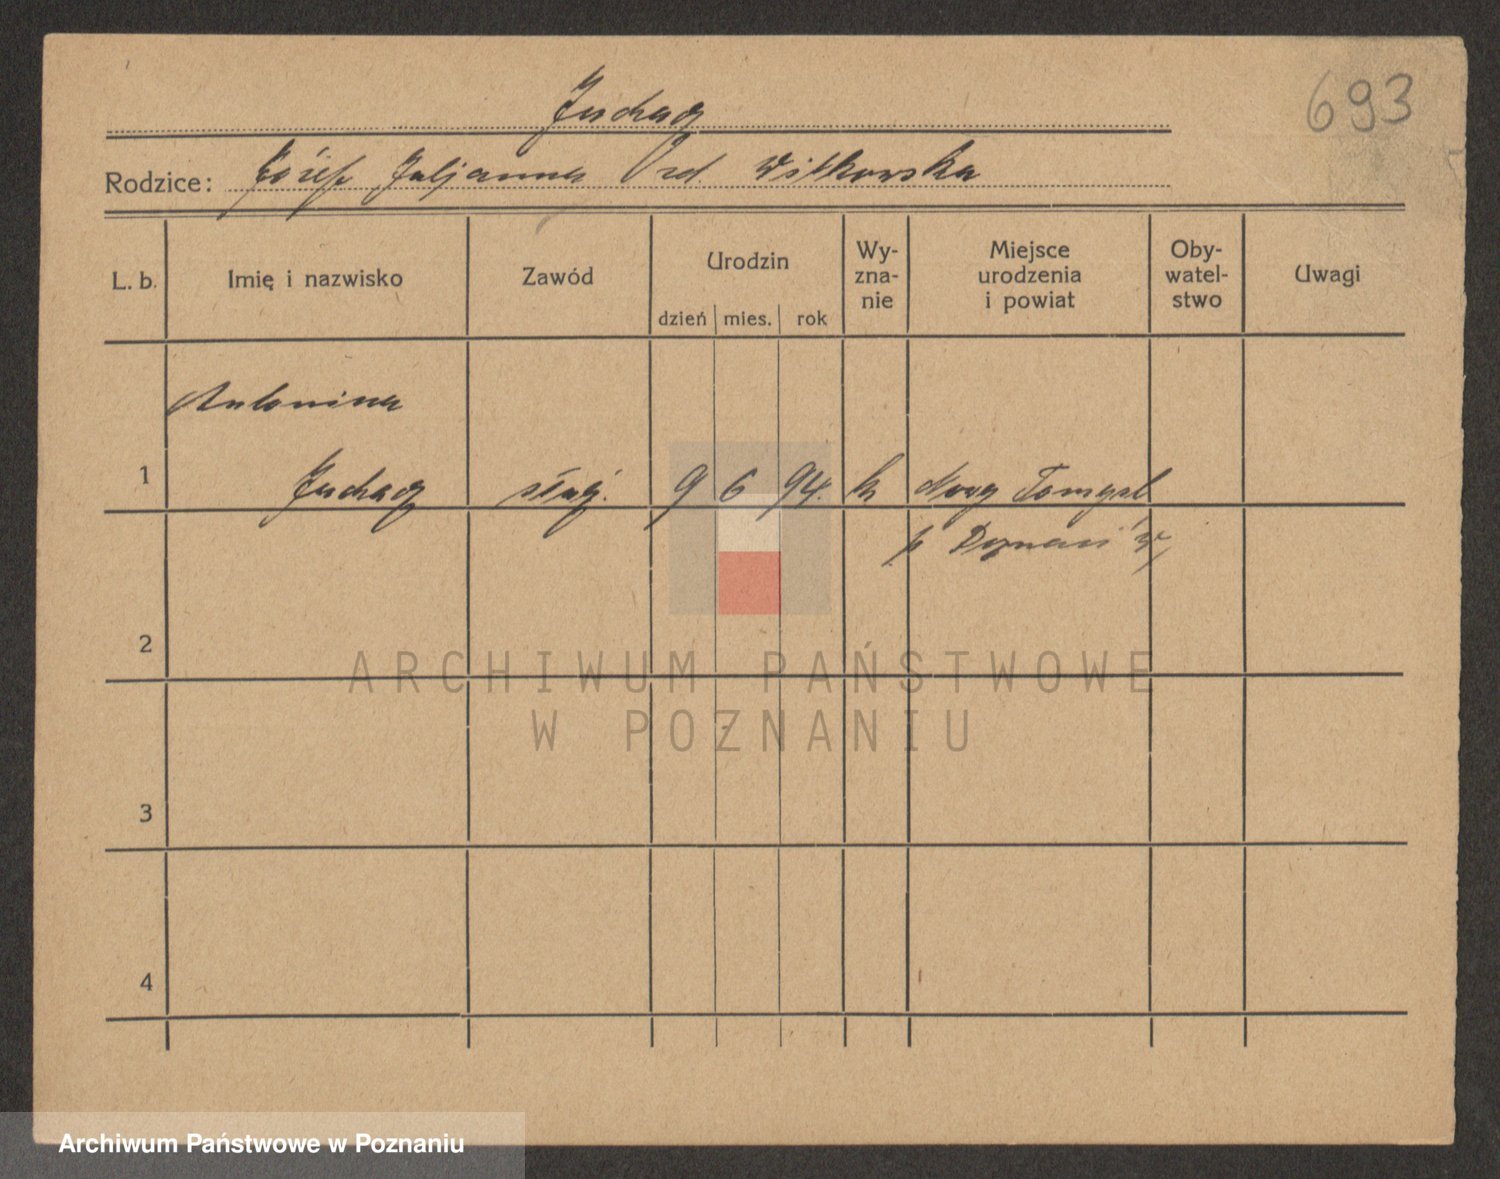 693
Juchacz
Rodzice: Józef Juljanna Wilkowska
L. b. Imię i nazwisko Zawód Urodzin dzień mies. rok Wy-zna-nie Miejsce urodzenia i powiat Oby-watel-stwo Uwagi
Antonina
1 Juchacz służ. 9 6 94. k Nowy Tomyśl
p
2
3
4
ARCHIWUM PAŃSTWOWE
W POZNANIU
Archiwum Państwowe w Poznaniu